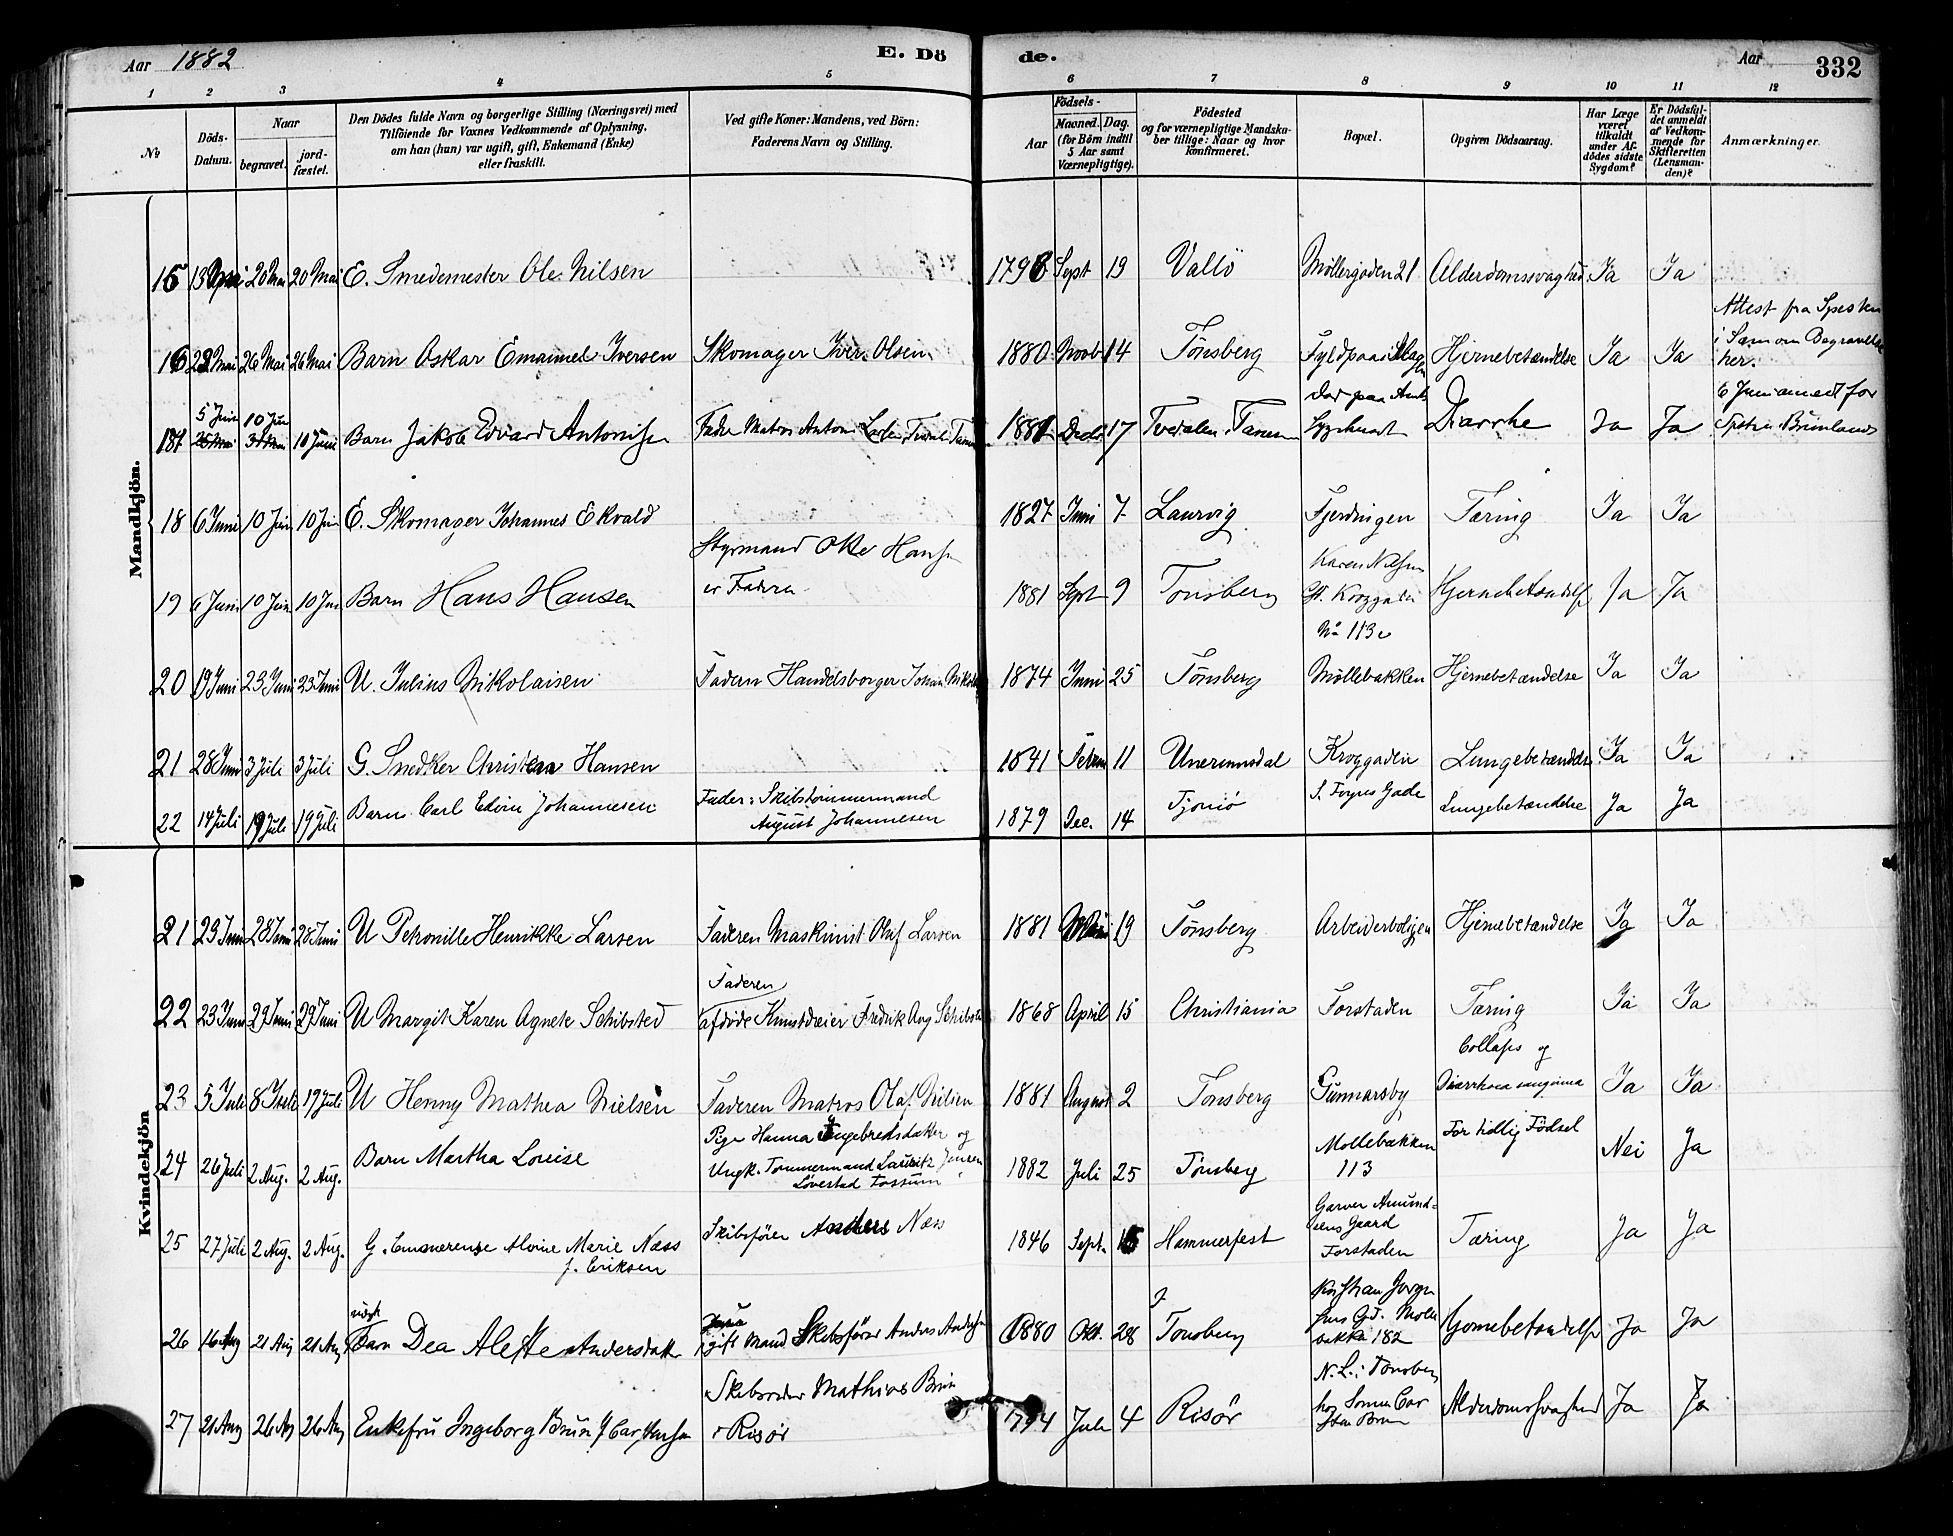 Aar 1882 E. Dö
de. Aar 332
1 2 3 4 5 6 7 8 9 10 11 12
№ Döds-Datum. Naar begravet. jordfæstet. Den Dödes fulde Navn og borgerlige Stilling (Næringsvei) med Tilföiende for Voxnes Vedkommende af Oplysning, om han (hun) var ugift, gift, Enkemand (Enke) eller fraskilt. Ved gifte Koner: Mandens, ved Börn: Faderens Navn og Stilling. Födsels- Aar Maaned. Dag. (for Börn indtil 5 Aar samt Værnepligtige). Födested og for værnepligtige Mandskaber tillige: Naar og hvor konfirmeret. Bopæl. Opgiven Dödsaarsag. Har Læge været tilkaldt under Afdödes sidste Sygdom? Er Dödsfaldet anmeldt af Vedkommende for Skifteretten (Lensmanden)? Anmærkninger.
Mandkjön.
15 13 20 Mai 20 Mai E. Smedemester Ole Nilsen 179 Sept 19 Vallö Møllergaden 21 Alderdomssvaghed Ja Ja
16 22 Mai 26 Mai 26 Mai Barn Oskar Emanuel Iversen Skomager Iver Olsen 1880 Novb 14 Tönsberg Hjernebetændelse Ja Ja Attest fra
her.
17 5 Juni 10 Jun 10 Juni Barn Jakob Edvard Antonisen Fader Matros Anton 1881 Decbr 17 Tvedalen Tanum Sygehuset Diarrhe Ja Ja 6 Juni
18 6 Juni 10 Juni 10 Jun E. Skomager Johannes Ekvald 1827 Juni 7 Laurvig Fjerdingen Tæring Ja Ja
19 6 Juni 10 Juni 10 Jun Barn Hans Hansen Styrmand Otto Hansen er Faderen 1881 Sept 9 Tonsberg Karen Nilsen No 113 Hjernebetændelse Ja Ja
20 19 Juni 23 Juni 23 Juni U. Julius Nikolaisen Faderen Handelsborger Johan 1874 Juni 25 Tønsberg Møllebakken Hjernebetændelse Ja Ja
21 28 Juni 3 Juli 3 Juli G. Snedker Christen Hansen 1841 11 Kroggaden Lungebetændelse Ja Ja
22 14 Juli 19 Juli 19 Juli Barn Carl Edvin Johannesen Fader: Skibstømmermand August Johannesen 1879 Dec. 14 Tjomö S. Foyns Gade Lungebetændelse Ja Ja
Kvindekjön
21 23 Juni 28 Juni 28 Juni U Petronille Henrikke Larsen Faderen Maskinist Oluf Larsen 1881 19 Tønsberg Arbeiderboligen Hjernebetændelse Ja Ja
22 23 Juni 29 Juni 29 Juni U Margit Karen Agnete Schibsted Faderen afdöde Fredrik Aug Schibsted 1868 April 15 Christiania Forstaden Tæring Ja Ja
23 5 Juli 8 Juli 19 Juli U Henny Mathea Nielsen Faderen Matros Olaf Nilsen 1881 August 2 Tonsberg Gunnarsby Collaps og Diarrhoea Ja Ja
24 26 Juli 2 Aug. 2 Aug. Barn Martha Louise Pige Hanna Ingebredsdatter og Ungk. Tømmermand Lauritz Jensen Løvestad Fossum 1882 Juli 25 Tønsberg Mollebakken 113 For tidlig Födsel Nei Ja
25 27 Juli 2 Aug. 2 Aug. G. Emmerense Alvine Marie Næss f. Eriksen Skibsförer Anders Næss 1846 Sept. Hammerfest Garver Amundsens Gaard Forstaden Tæring Ja Ja
26 16 Aug 21 Aug 21 Aug Barn Dea Alette Andersdatter gift Mand Skibsförer Anders 1880 Okt. 28 Tonsberg Kristian 182 Ja Ja
27 21 Aug 26 Aug 26 Aug Enkefru Ingeborg Brun f Carstensen Skibsreder Mathias Brun i Risör 1794 Juli 4 Risör N.L. i Tonsberg hos Sonnen Carsten Brun Alderdomssvaghed Ja Ja